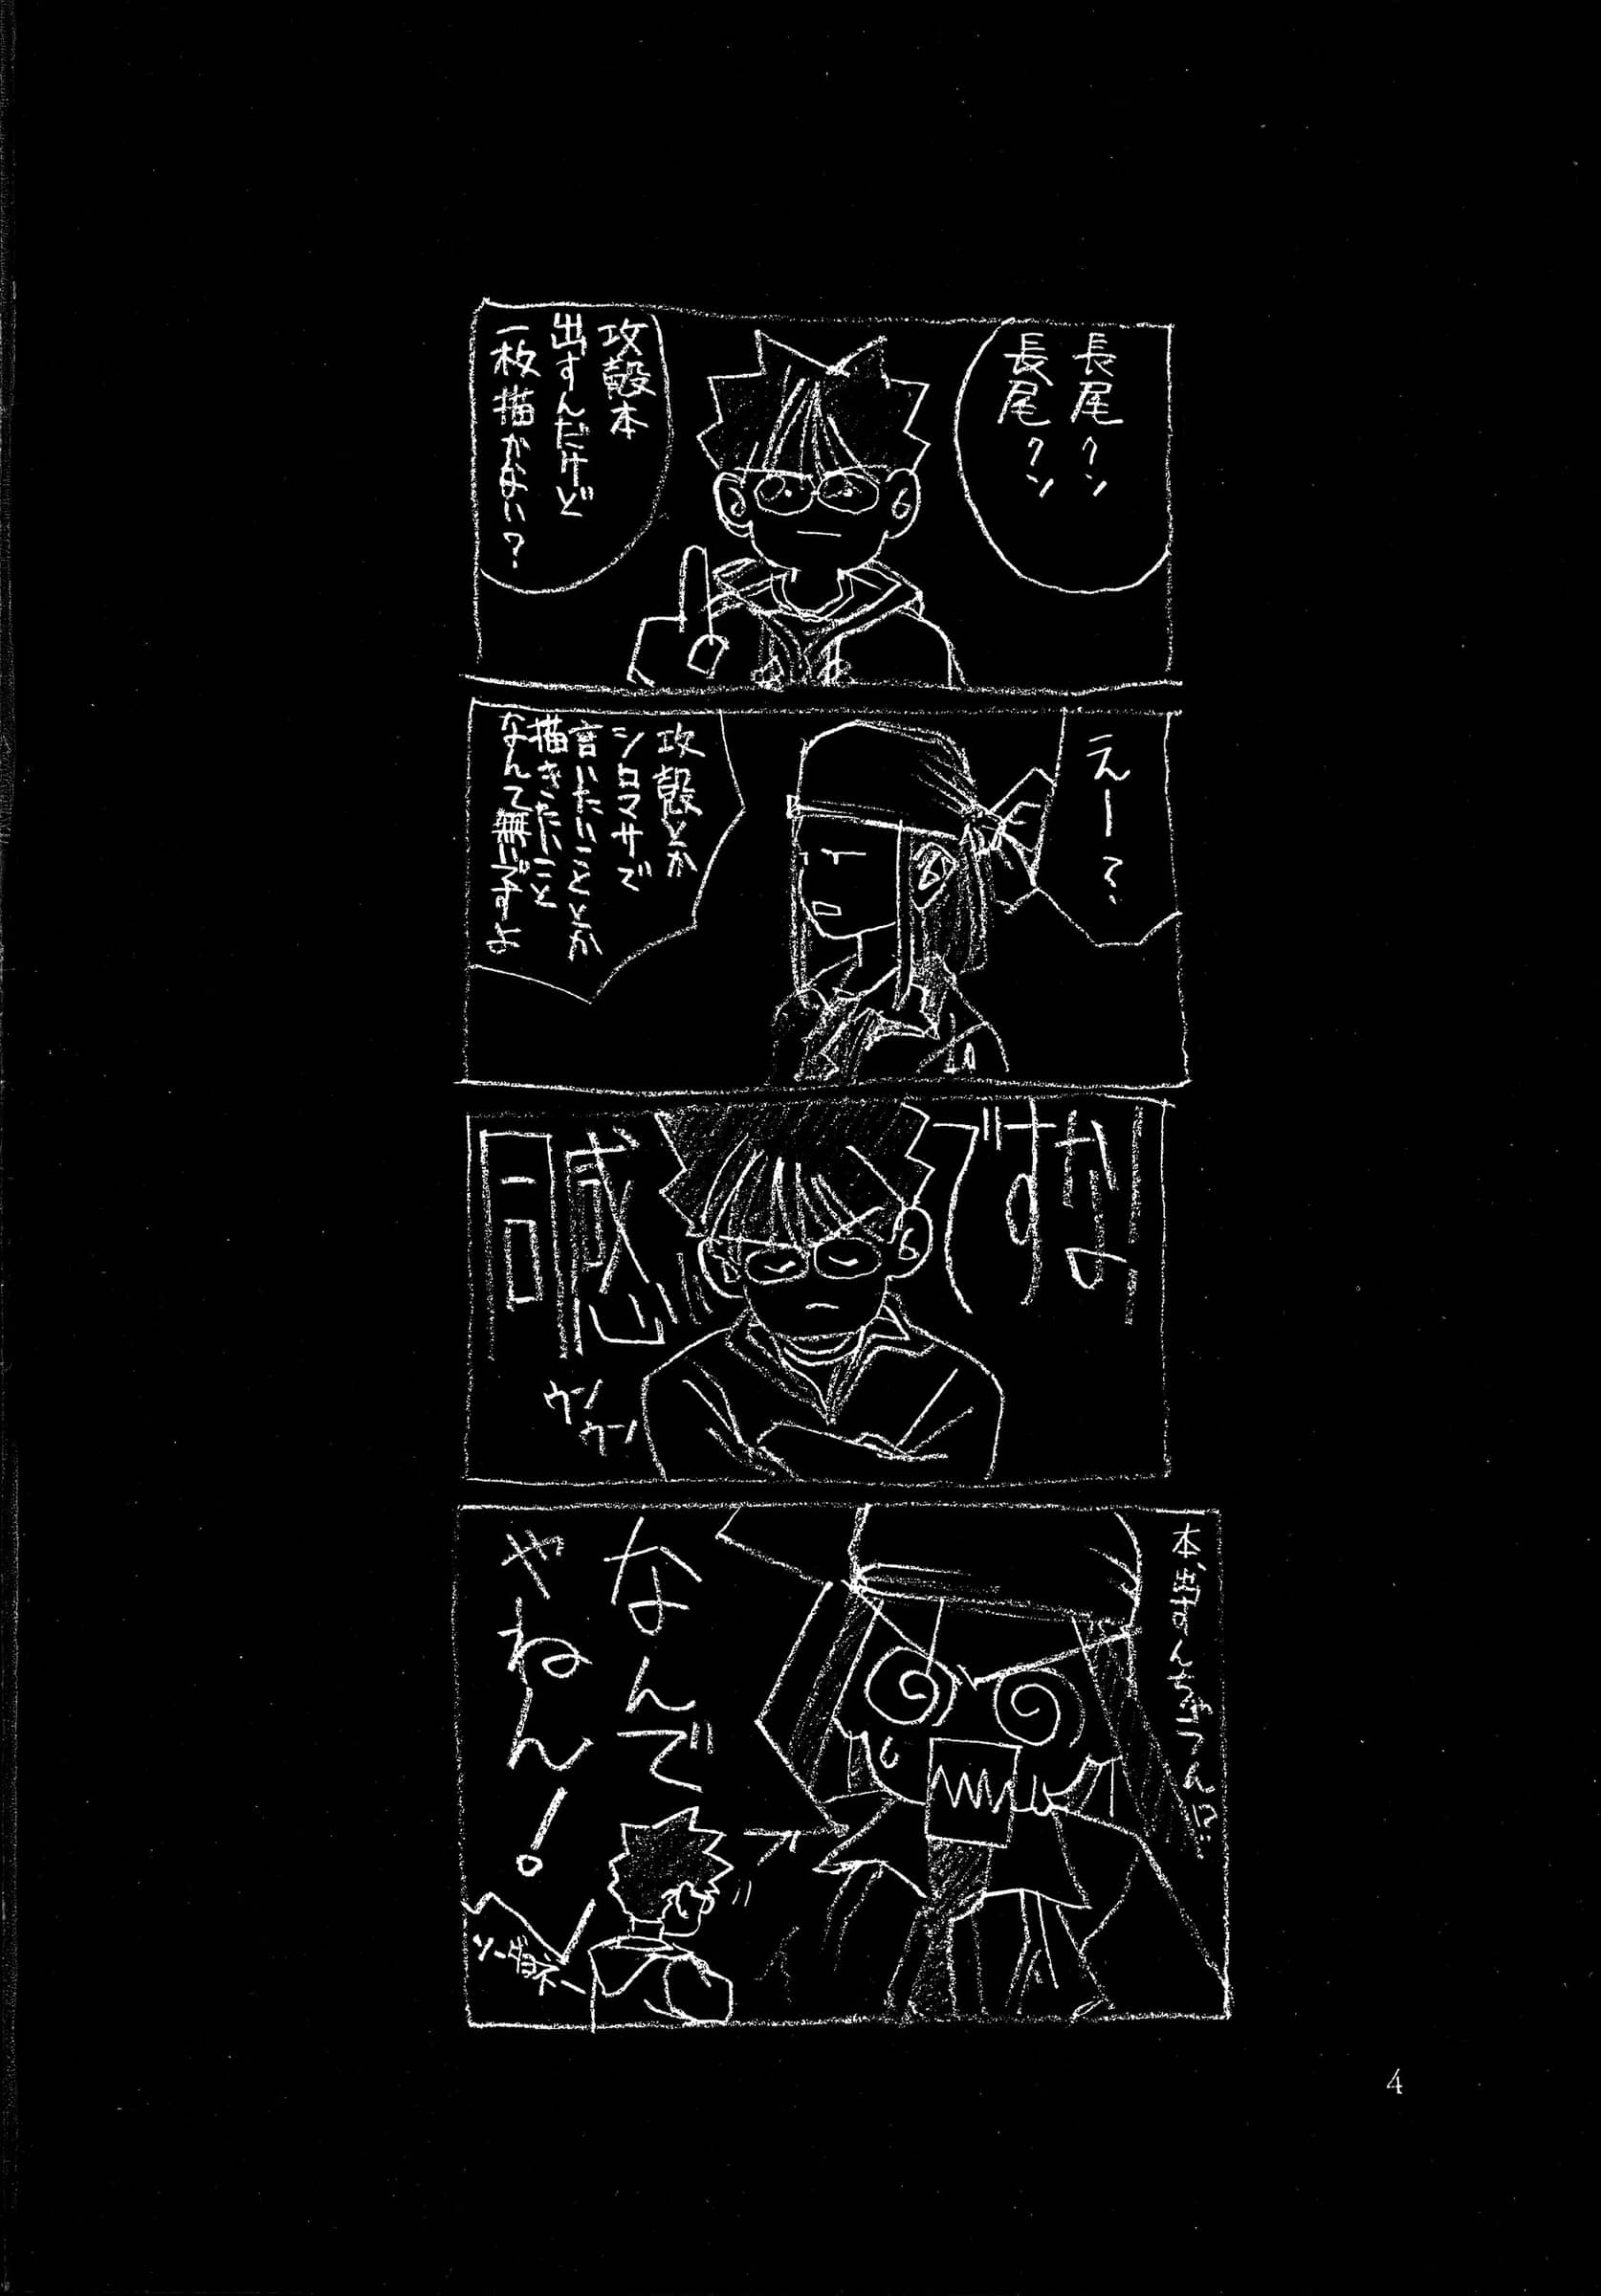 長尾クン
長尾クン
攻殻本
出すんだけど
一枚描かない?
えー
攻殻とか
シロマサで
言いたいこととか
描きたいこと
なんて無いですよ
ですな
同感
ウン
ウン
なんで
やねん!
ソーダヨネー
4